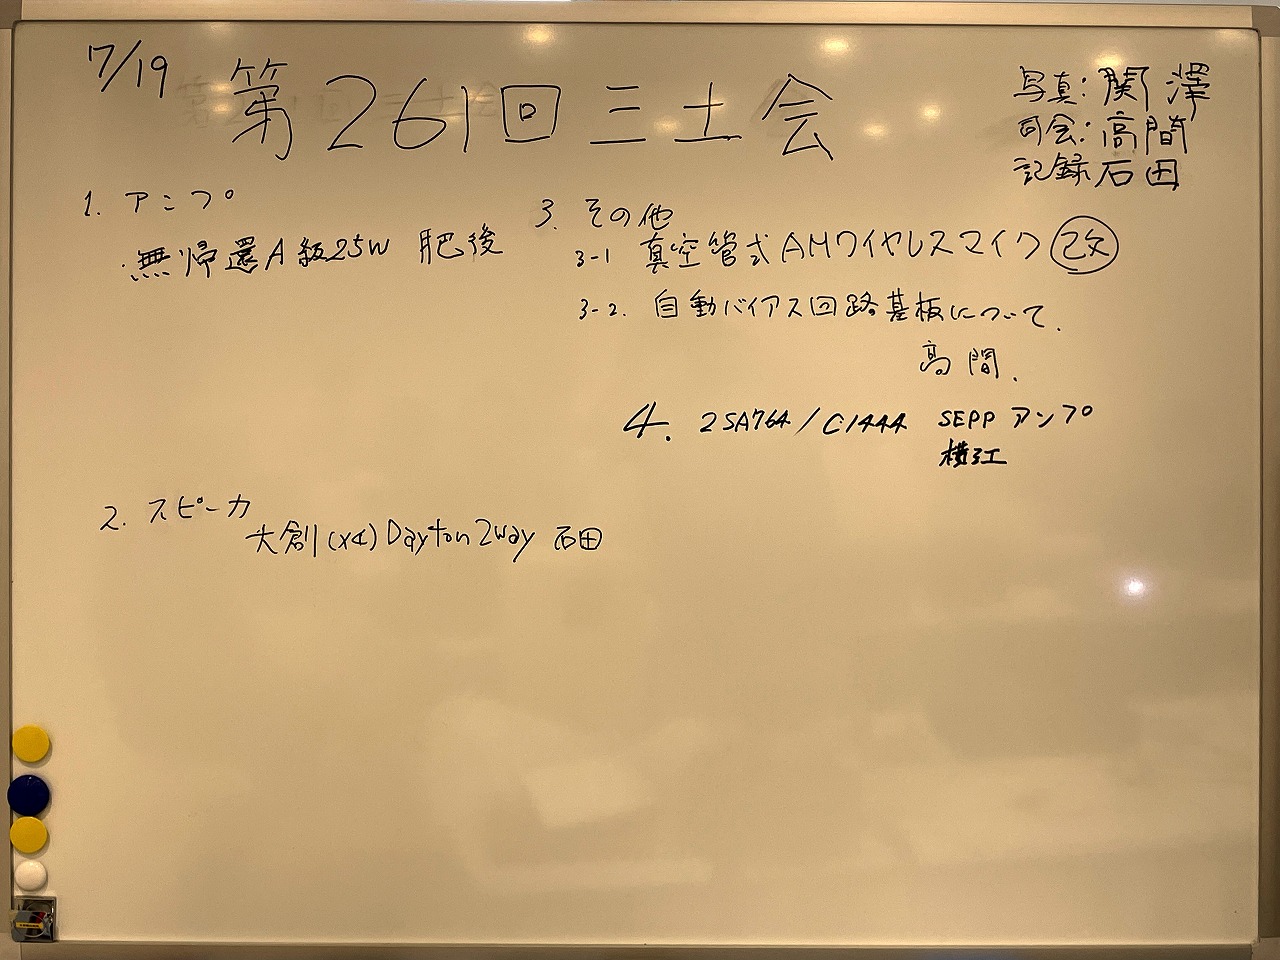 7/19 第261回三土会
写真:関澤
司会:高間
記録 石田
1. アンプ
無帰還A級25W 肥後
2. スピーカ
大創(x4) Dayton 2way 石田
3. その他
3-1 真空管式AMワイヤレスマイク 改
3-2. 自動バイアス回路基板について.
高間.
4. 2SA764/C1444 SEPP アンプ
横江